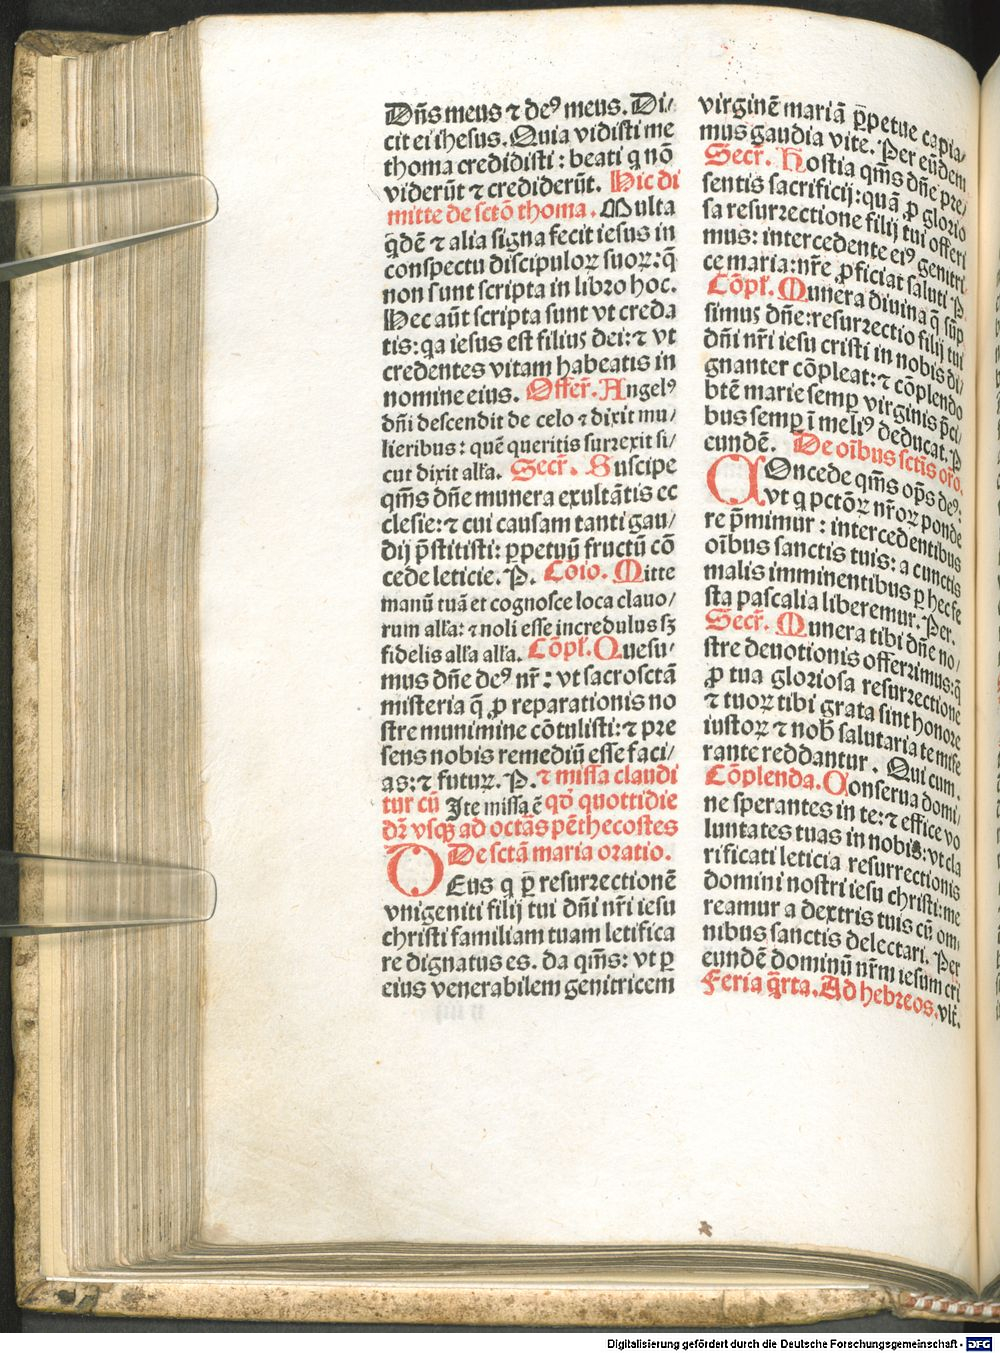 Dñs meus ⁊ deꝰ meus. Di/
cit ei ihesus. Quia vidisti me
thoma credidisti : beati q nō
viderūt ⁊ crediderūt. Hic di
mitte de sctō thoma. Multa
q̄dē ⁊ alia signa fecit iesus in
conspectu discipuloꝝ suoꝝ: q̄
non sunt scripta in libro hoc.
Hec aūt scripta sunt vt creda
tis: qa iesus est filius dei: ⁊ vt
credentes vitam habeatis in
nomine eius. Offer̄. Angelꝰ
dñi descendit de celo ⁊ dixit mu/
lieribus : quē queritis surrexit si/
cut dixit alľa. Secr̄. Suscipe
qm̄s dñe munera exultātis ec
clesie: ⁊ cui causam tanti gau/
dij p̄stitisti: ꝑpetuū fructū cō
cede leticie. P. Cōio. Mitte
manū tuā et cognosce loca clauo/
rum alľa: ⁊ noli esse incredulus sꝫ
fidelis alľa alľa. Cōpl. Quesu/
mus dñe deꝰ nr̄ : vt sacrosctā
misteria q̄ ꝓ reparationis no
stre munimine cōtulisti: ⁊ pre
sens nobis remediū esse faci/
as: ⁊ futuꝝ. P. ⁊ missa claudi
tur cū Ite missa ē qd̄ quottidie
dr̄ vsqꝫ ad octās pēthecostes
De sctā maria oratio.
DEus q ꝑ resurrectionē
vnigeniti filij tui dñi nr̄i iesu
christi familiam tuam letifica
re dignatus es. da qm̄s: vt ꝑ
eius venerabilem genitricem
virginē mariā ꝑpetue capia/
mus gaudia vite. Per eūdem
Secr̄. Hostia qm̄s dñe pre/
sentis sacrificij: quā ꝓ glorio
sa resurrectione filij tui offeri
mus: intercedente eiꝰ genitri/
ce maria: nr̄e ꝓficiat saluti P.
Cōpl. Munera diuina q̄ sūp
simus dñe: resurrectio filij tui
dñi nr̄i iesu cristi in nobis di/
gnanter cōpleat: ⁊ cōplendo
btē marie semꝑ virginis p̄ci/
bus semꝑ ī meliꝰ deducat. P
eundē. De oībus sctis oro.
COncede qm̄s ops̄ deꝰ:
vt q pctōꝝ nr̄oꝝ ponde
re p̄mimur : intercedentibus
oībus sanctis tuis: a cunctis
malis imminentibus ꝑ hec fe
sta pascalia liberemur. Per.
Secr̄. Munera tibi dñe no/
stre deuotionis offerrimus: q̄
ꝓ tua gloriosa resurrectione
⁊ tuoꝝ tibi grata sint honore
iustoꝝ ⁊ nob̄ salutaria te mise
rante reddantur. Qui cum.
Cōplenda. Conserua domi/
ne sperantes in te: ⁊ effice vo
luntates tuas in nobis: vt cla
rificati leticia resurrectionis
domini nostri iesu christi: me
reamur a dextris tuis cū om/
nibus sanctis delectari. Per
eundē dominū nr̄m iesum cri
Feria q̄rta. Ad hebreos. vlt̄.
Digitalisierung gefördert durch die Deutsche Forschungsgemeinschaft - DFG